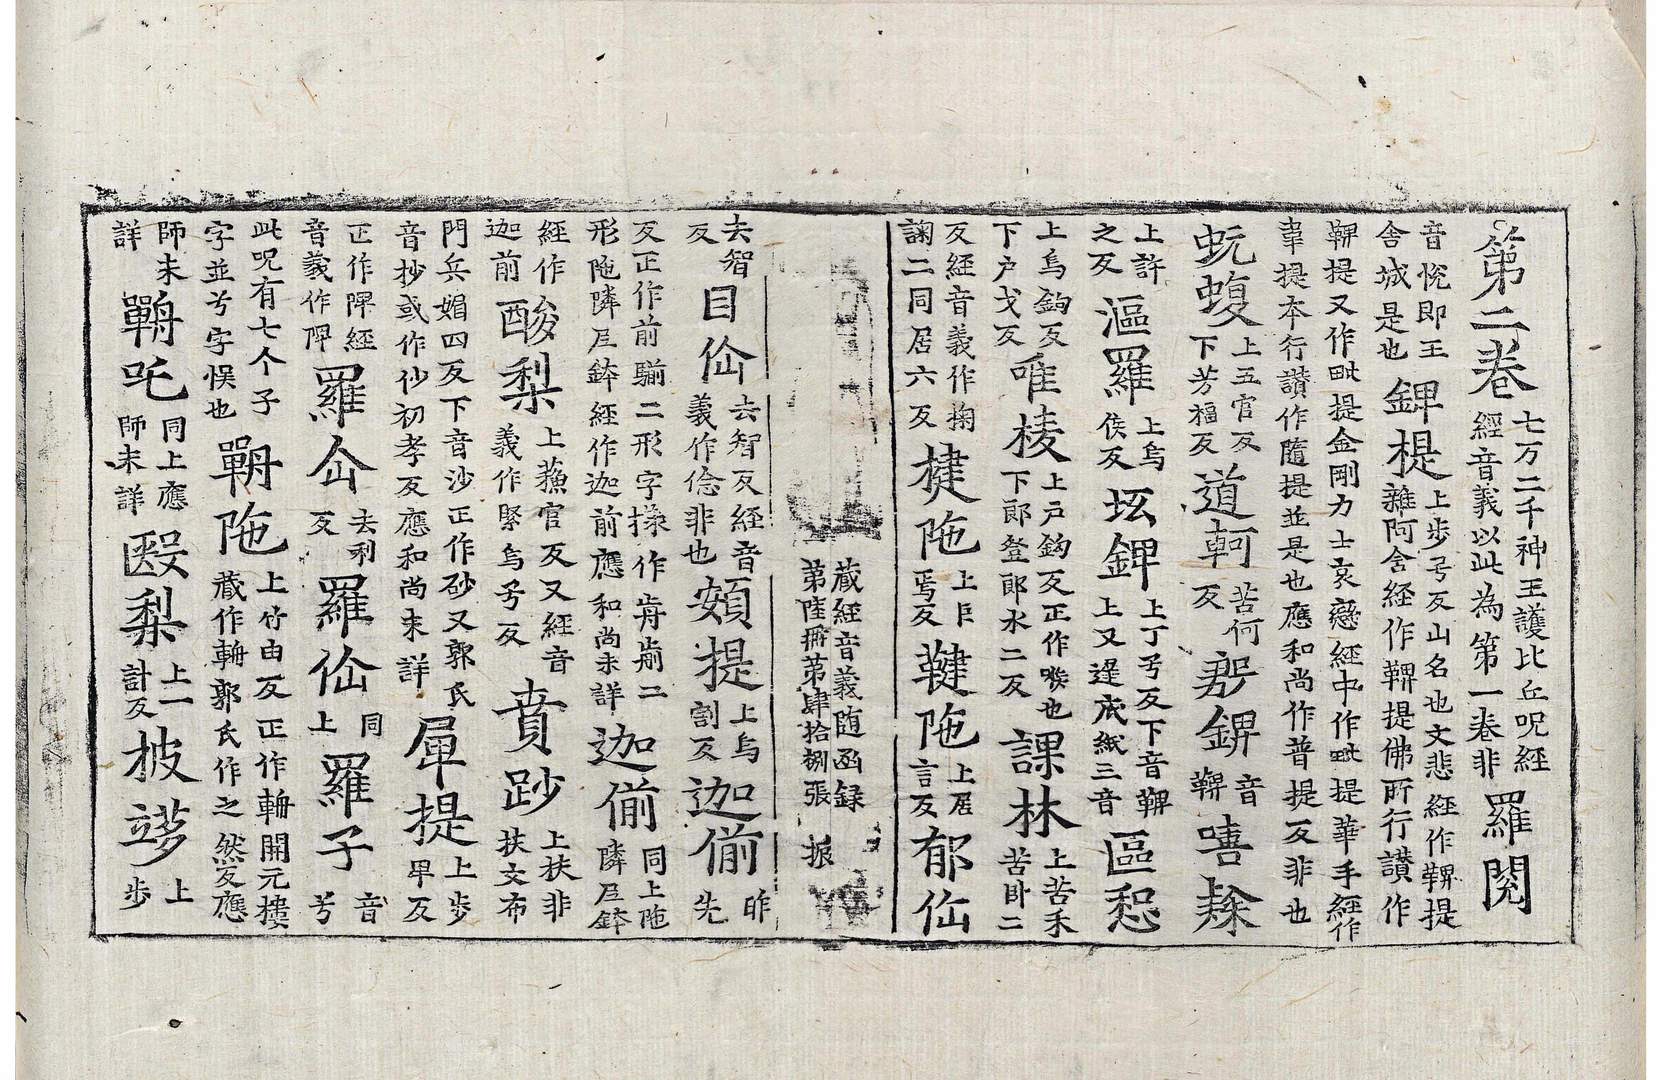 第二卷 七万二千神王護比丘呪經經音義以此為第一卷非 羅閱
音悅即王舍城是也 錍提 上步兮反山名也文悲經作鞞提雜阿含經作鞞提佛所行讃作
鞞提又作毗提金剛力士哀戀經中作毗提華手經作
提本行讃作隨提並是也應和尚作普提反非也
蚖蝮 上五官反下芳福反 道軻 苦何反 錍 音鞞 嘻
上許之反 漚羅 上烏侯反 錍 上丁兮反下音鞞上又逞底紙三音 區惒
上烏鉤反下户戈反 唯棱 上户鉤反正作喉也下郎登郎水二反 課林 上苦禾苦卧二
反經音義作掬踘二同居六反 揵陁 上巨焉反 鞬陁 上居言反 郁伷
藏經音義随函録 第陸冊第肆拾捌張 振
去智反 目伱 去智反經音義作偸非也 頞提 上烏割反 迦偂 昨先
反正作前騚二形字樣作歬偂二形陁隣尼鉢經作迦前應和尚未詳 迦偂 同上陁隣尼鉢
經作迦前 酸梨 上蘓官反又經音義作醫烏兮反 賁 上扶非扶文布
門兵媚四反下音沙正作砂又郭氏音抄或作仯初孝反應和尚未詳 提 上步卑反
正作隄經音義作 羅 去利反 羅伱 同上 羅子 音兮
此呪有七个子字並兮字悮也 陁 上竹由反正作輈開元樓藏作輈郭氏作之然反應
師未詳 吒 同上應師未詳 毉梨 上一計反 披 上步